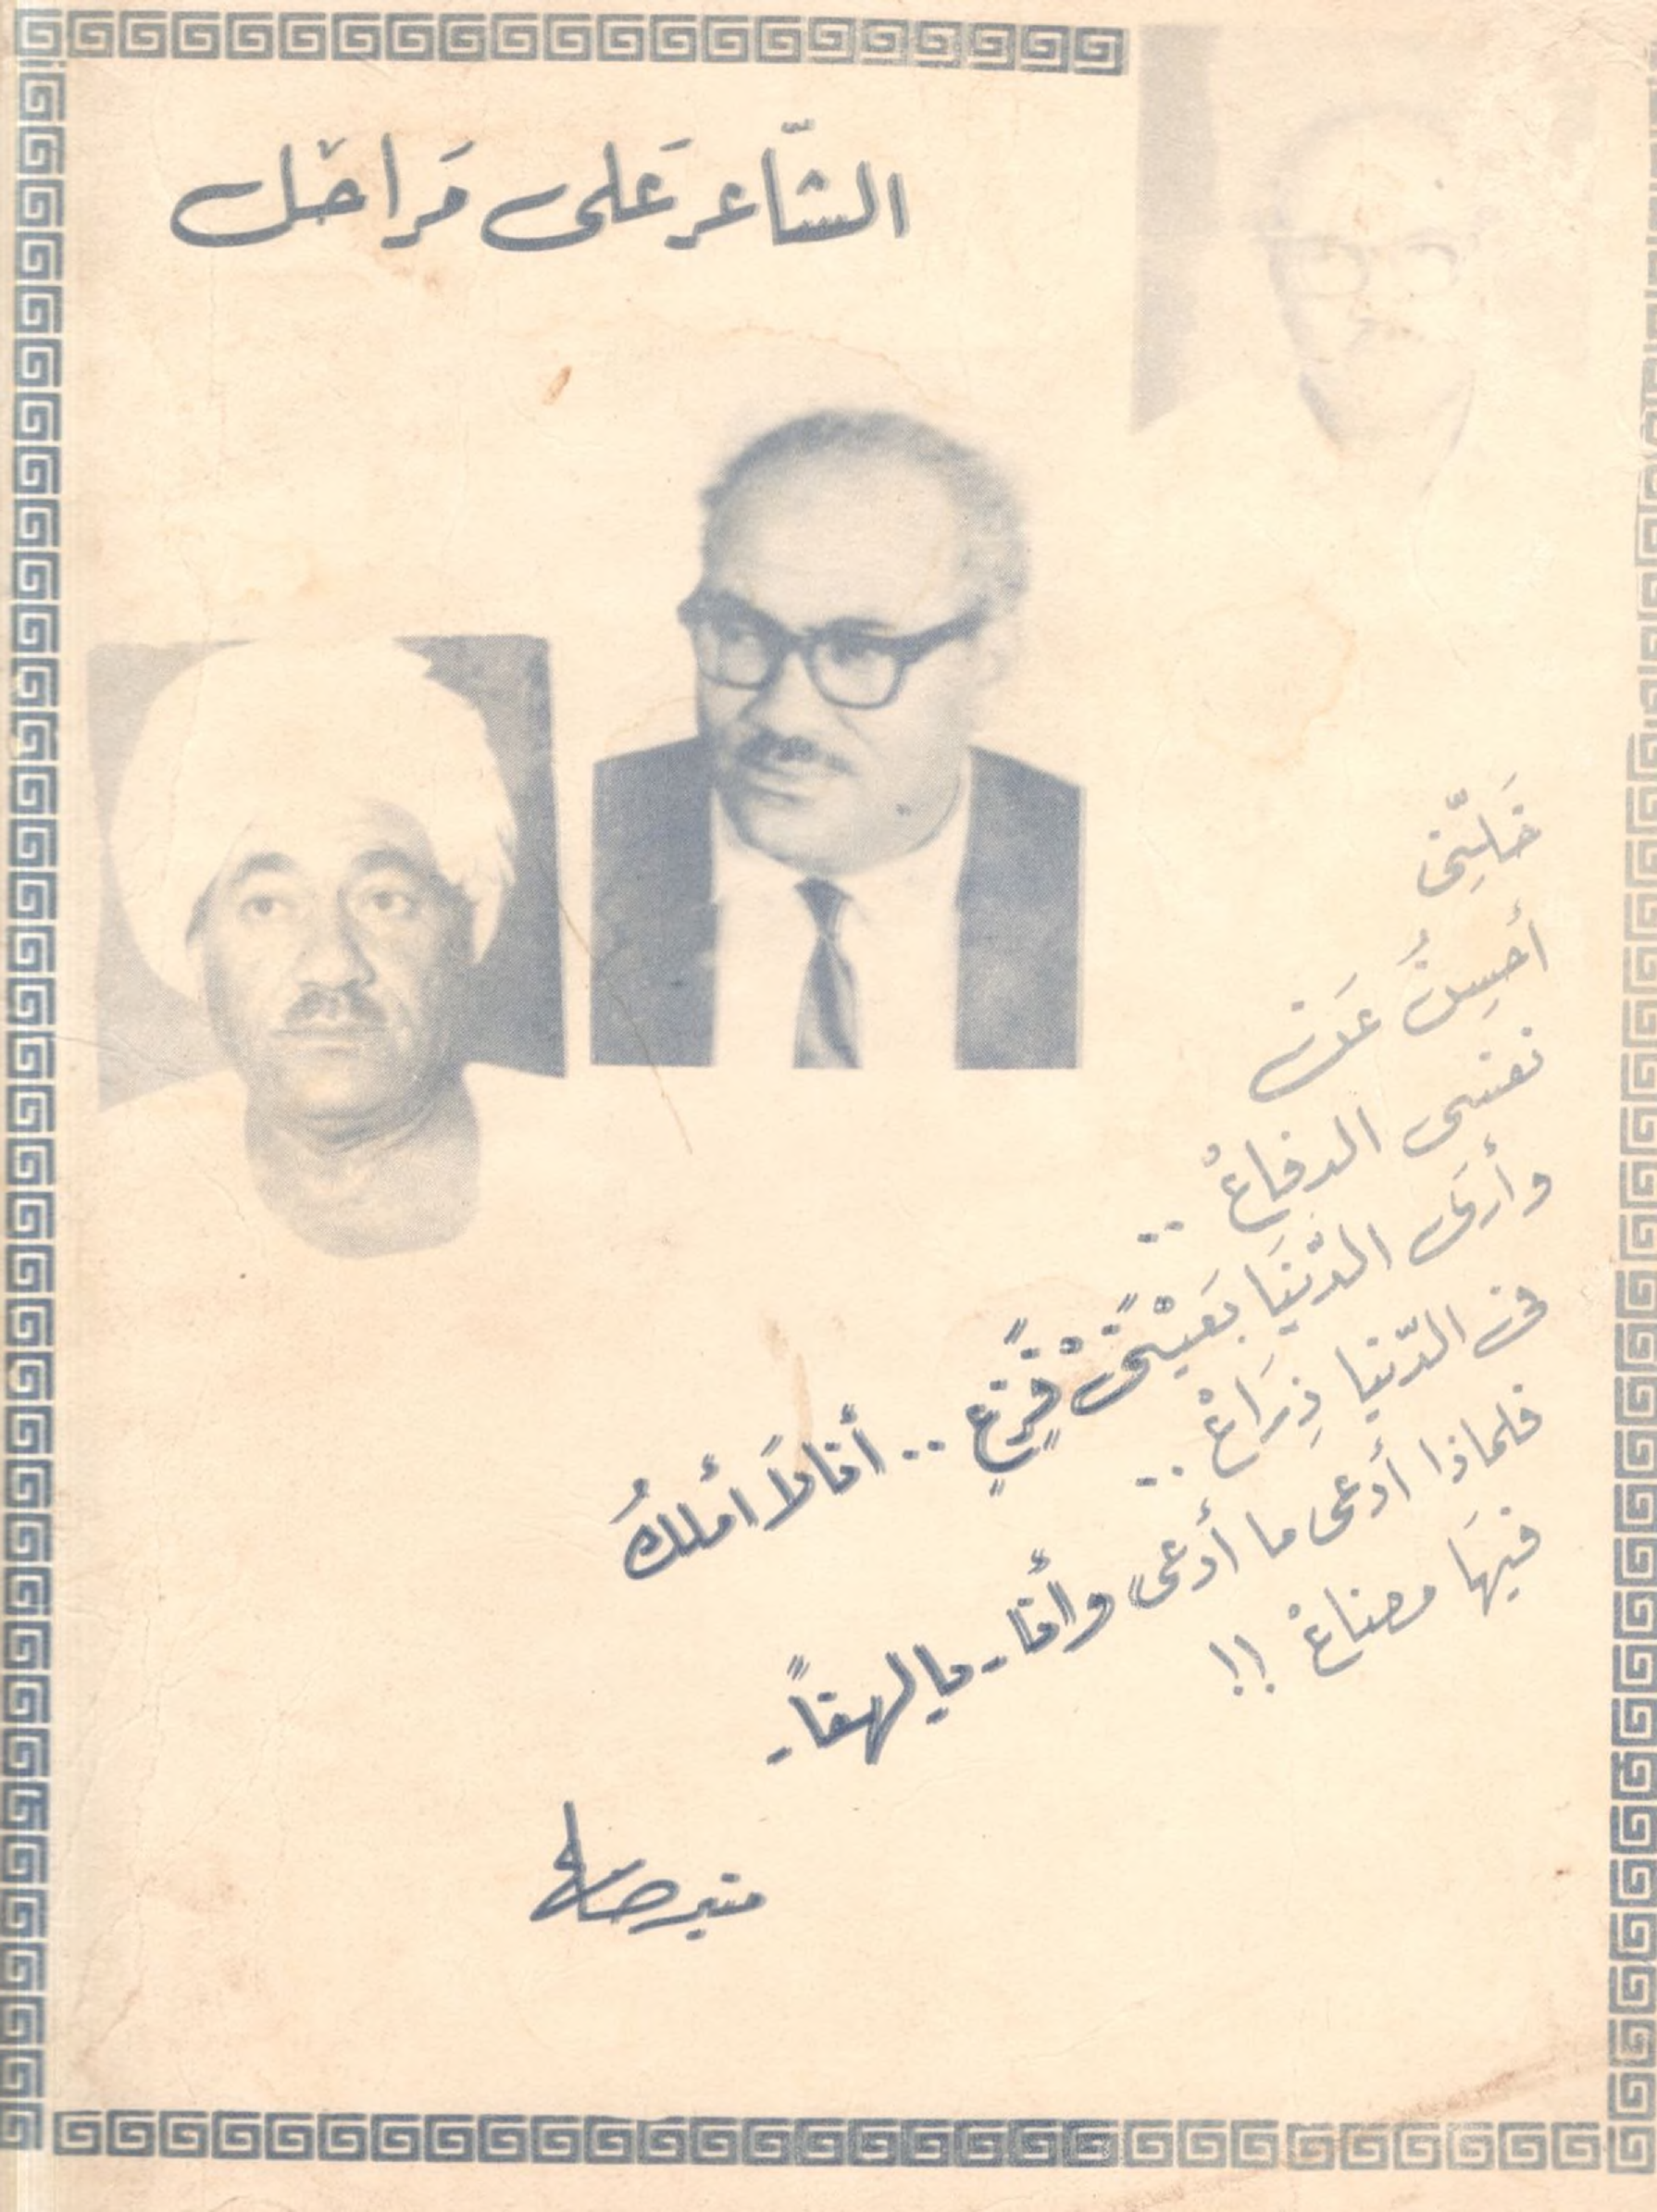 الشّاعر عَلى مَراحَل
خَلِّنى
أحسِنُ عَن
نفسى الدفاعْ ..
وأرَى الدّنيَا بعَيْنَىْ فَزِعٍ .. أنا لاَ أملكُ
فى الدّنيا ذِرَاعْ ..
فلماذا أدعى ما أدعى وأنا - يالهفاً -
فيهَا مضاعْ !!
منير صالح